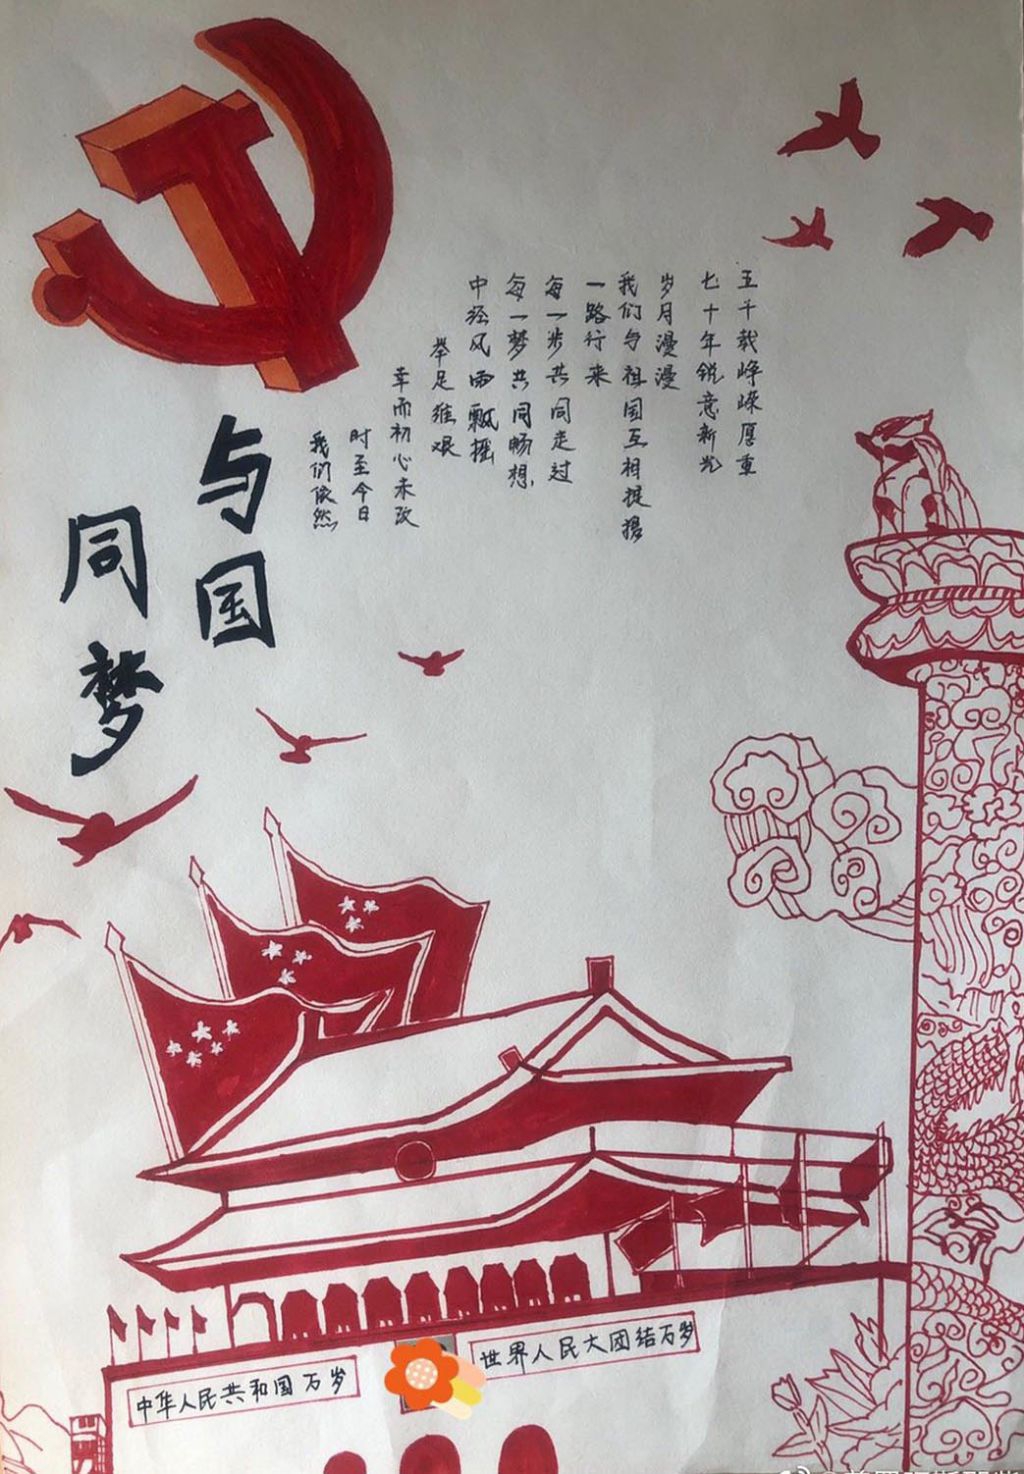 五千载峥嵘厚重
七十年锐意新光
岁月漫漫
我们与祖国互相提携
一路行来
每一步共同走过
每一梦共同畅想
中经风雨飘摇
举足维艰
幸而初心未改
时至今日
我们依然
与国
同梦
中华人民共和国万岁
世界人民大团结万岁